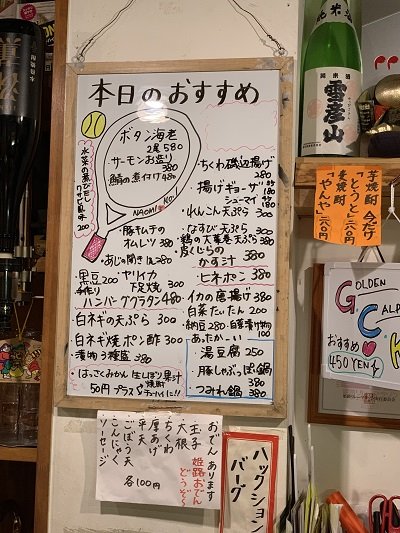 本日のおすすめ
ボタン海老
2尾 580
サーモンお造り
380
鯖の煮付け 480
NAOMI
水菜の煮びたし
ワサビ風味
200
豚キムチの
オムレツ 380
・あじの開き 380
・黒豆 200
手作り
ヤリイカ
下足焼 300
ハンバーググラタン 480
白ネギの天ぷら 300
白ネギ焼ポン酢 300
漬物3種盛 380
・はっさくみかん生しぼり果汁
50円プラス
焼酎
チューハイに!!
ちくわ磯辺揚げ
280
・揚げギョーザ 180
シューマイ 180
・れんこん天ぷら 300
・なすび天ぷら 300
・鶏の大葉巻天ぷら 380
かす汁 380
・ヒネポン 380
イカの唐揚げ 380
・白菜だいたん 200
・納豆 280
・自家漬け物 100
あったかーい
湯豆腐 250
・豚しゃぶしゃぶ鍋 380
つみれ鍋 380
おでんあります
姫路おでん
どうぞ〜
玉子
大根
ちくわ
厚あげ
平天
ごぼう天
こんにゃく
ソーセージ
各100円
ハックション
バーグ
純米酒
雪彦山
芋焼酎 今だけ
「とうと」三八〇円
麦焼酎
「やんや」二八〇円
GOLDEN
G
CAL
C
K
おすすめ
450YEN